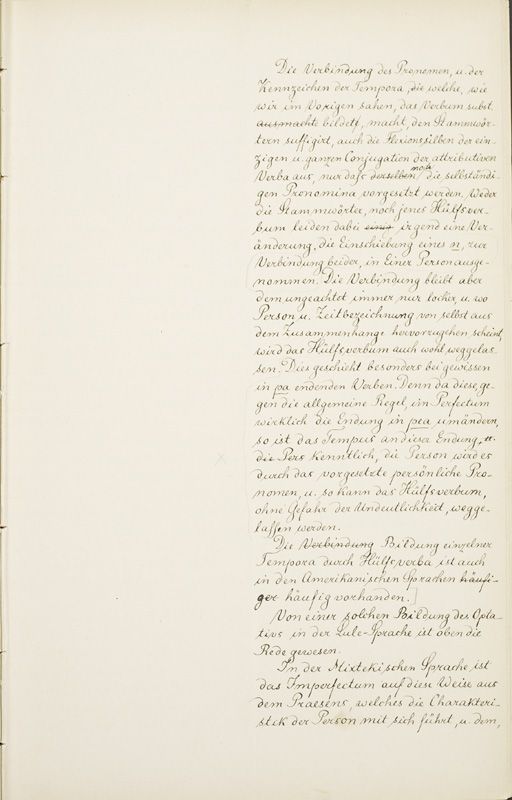 Die Verbindung des Pronomen, u. der
Kennzeichen der Tempora, die welche, wie
wir im Vorigen sahen, das Verbum subst.
ausmachte bildete, macht, den Stammwör-
tern suffigirt, auch die Flexionssilben der ein-
zigen u. ganzen Conjugation der attributiven
Verba aus, nur daſs derselben noch die selbständi-
gen Pronomina vorgesetzt werden. Weder
die Stammwörter, noch jenes Hülfsver-
bum leiden dabei einig irgend eine Ver-
änderung, die Einschiebung eines n, zur
Verbindung beider, in Einer Person ausge-
nommen. Die Verbindung bleibt aber
dem ungeachtet immer nur locker, u. wo
Person u. Zeitbezeichnung von selbst aus
dem Zusammenhange hervorzugehen scheint,
wird das Hülfsverbum auch wohl weggelas-
sen. Dies geschieht besonders bei gewissen
in pa endenden Verben. Denn da diese, ge-
gen die allgemeine Regel, im Perfectum
wirklich die Endung in pea umändern,
so ist das Tempus an dieser Endung, u.
die Pers kenntlich, die Person wird es
durch das vorgesetzte persönliche Pro-
nomen, u. so kann das Hülfsverbum,
ohne Gefahr der Undeutlichkeit, wegge-
lassen werden.
Die Verbindung Bildung einzelner
Tempora durch Hülfsverba ist auch
in den Amerikanischen Sprachen häufi-
ger häufig vorhanden.]
Von einer solchen Bildung des Opta-
tivs in der Lule-Sprache ist oben die
Rede gewesen.
In der Mixtekischen Sprache ist
das Imperfectum auf diese Weise aus
dem Praesens, welches die Charakteri-
stik der Person mit sich führt, u. dem,